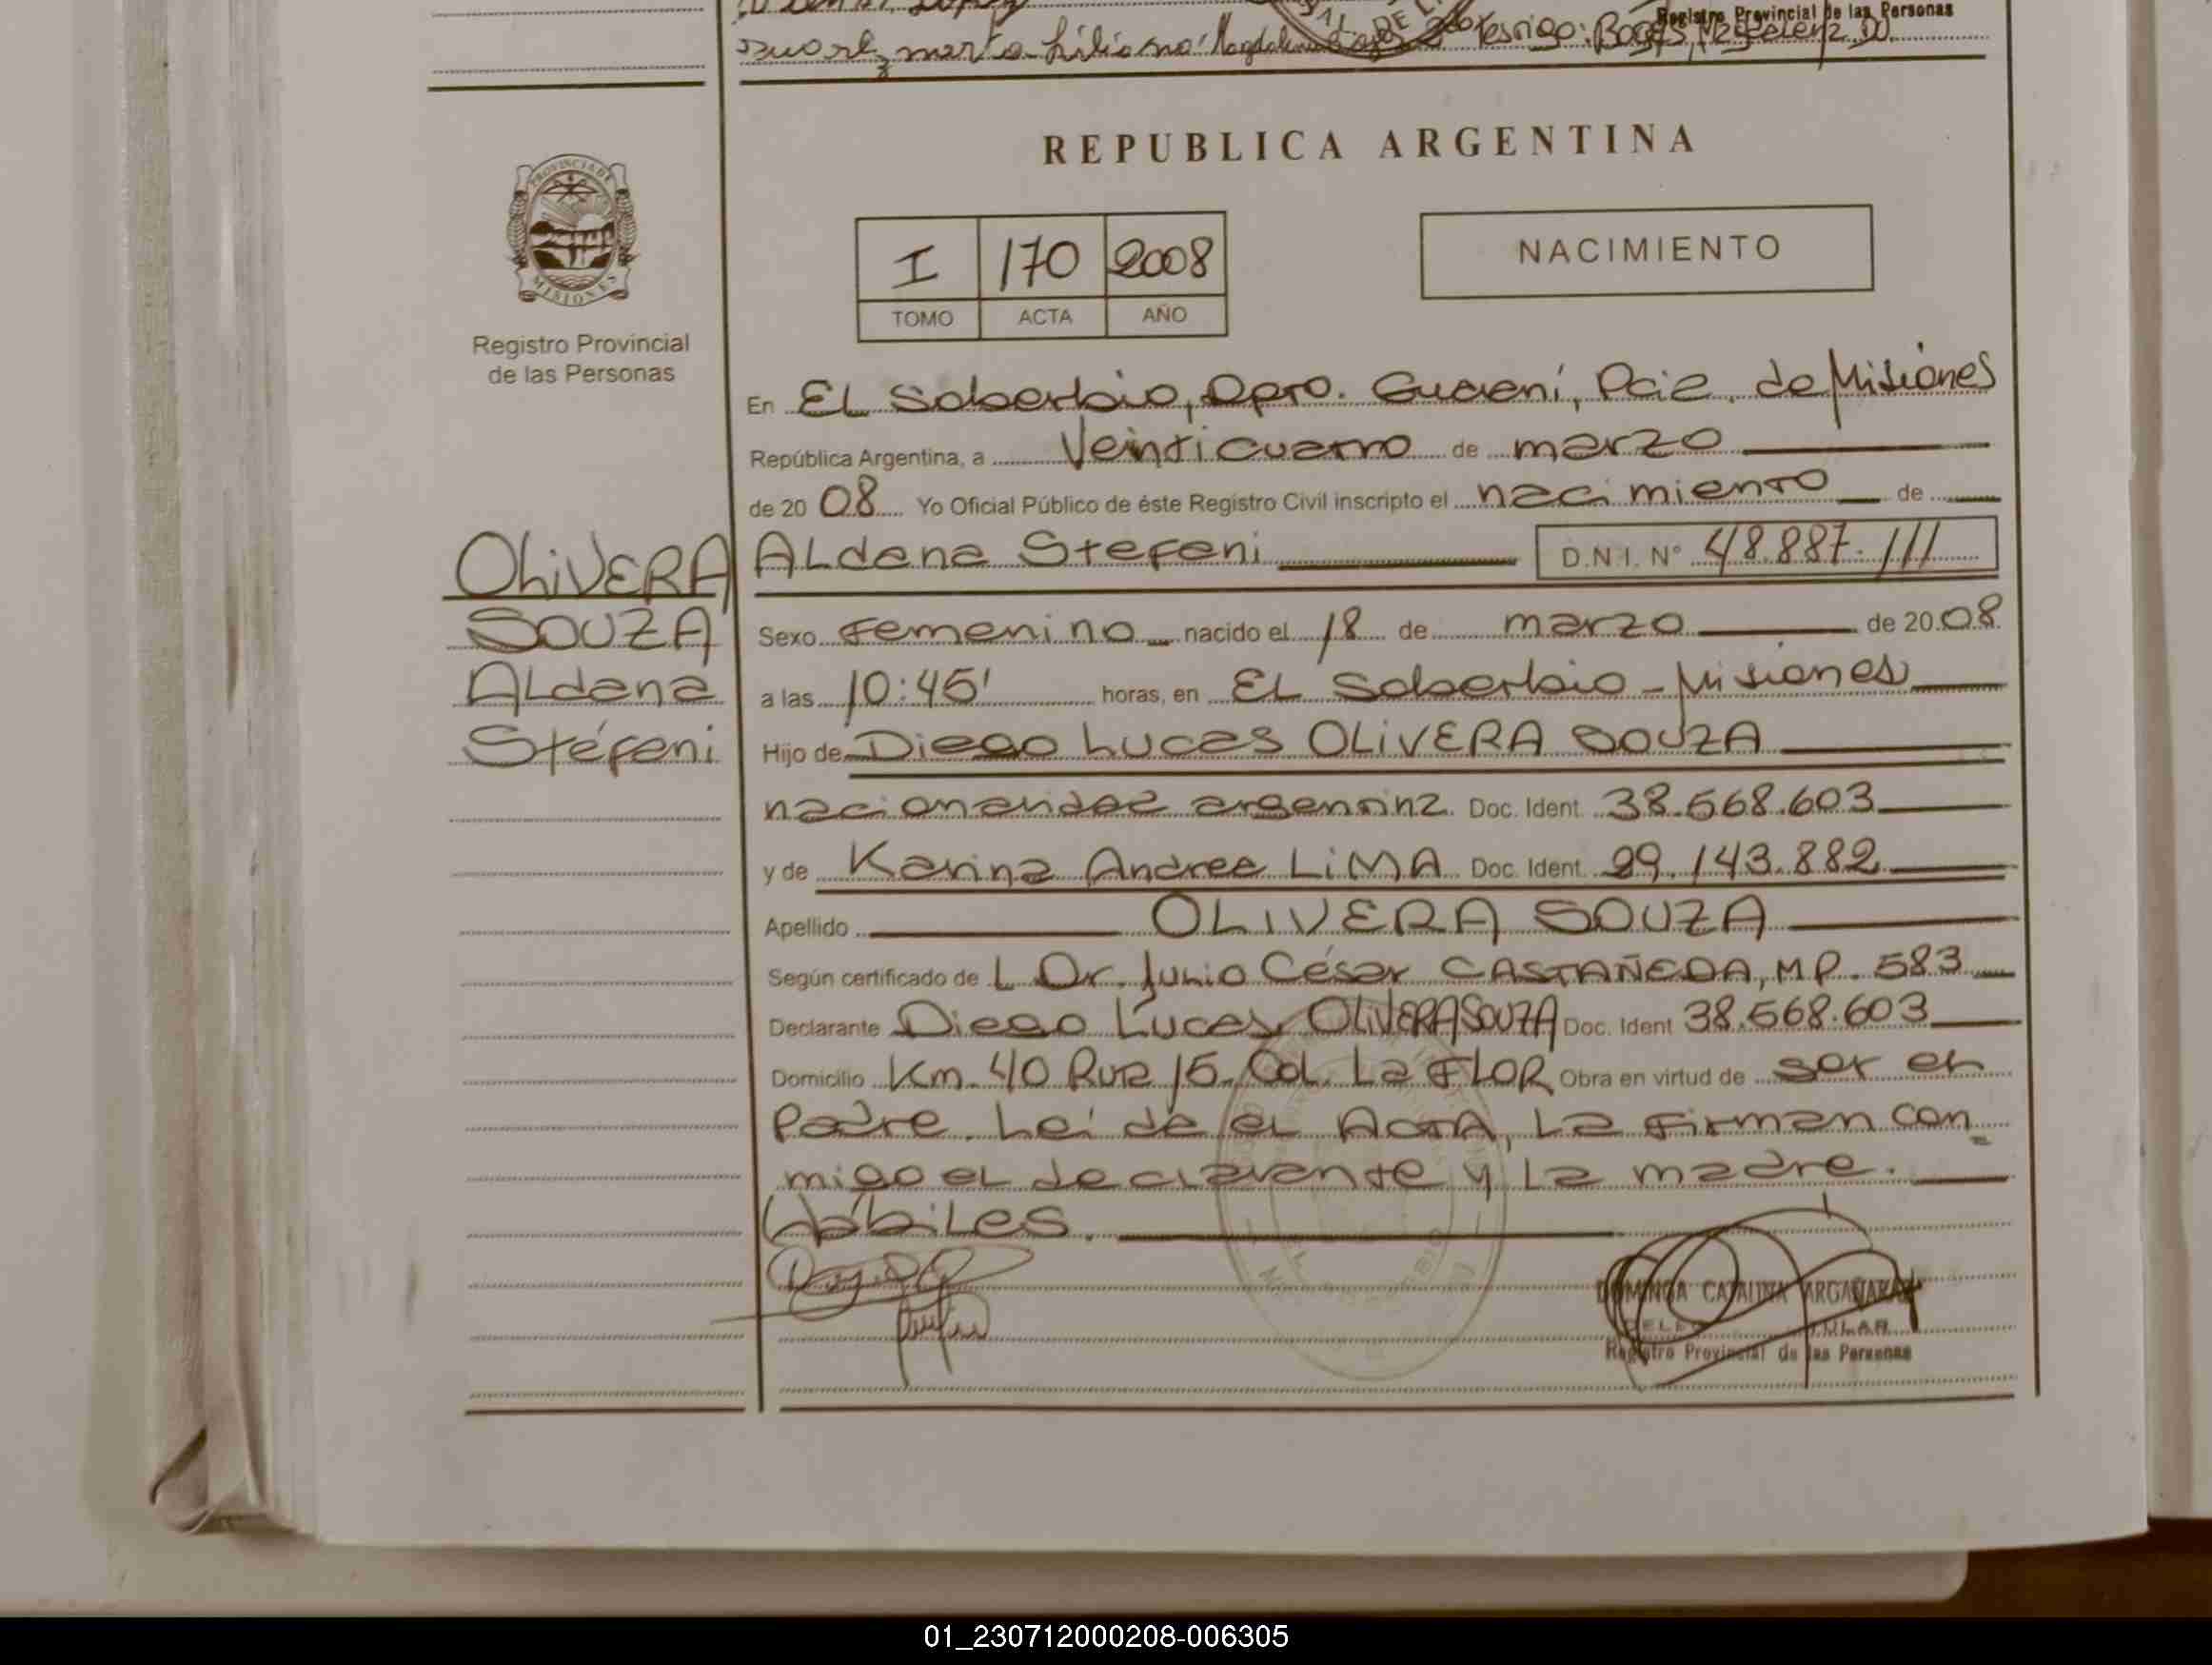 Suarez, marta Liliana
Testigo: Boges, Magdalena D.
Registro Provincial de las Personas
REPUBLICA ARGENTINA
PROVINCIA DE
MISIONES
I 170 2008
TOMO ACTA AÑO
NACIMIENTO
Registro Provincial
de las Personas
En EL Soberbio, Dpto. Guaraní, Pcia. de Misiones
República Argentina, a Veinticuatro de marzo
de 20 08 Yo Oficial Público de éste Registro Civil inscripto el nacimiento de
OLIVERA
SOUZA
Aldana
Stéfani
ALdana Stefani D.N.I. N° 48.887.111
Sexo femenino nacido el 18 de marzo de 20 08
a las 10:45' horas, en EL Soberbio - Misiones
Hijo de Diego Lucas OLIVERA SOUZA
nacionalidad argentina Doc. Ident. 38.568.603
y de Karina Andrea LIMA Doc. Ident. 29.143.882
Apellido OLIVERA SOUZA
Según certificado de L Dr. Julio César CASTAÑEDA, M.P. 583
Declarante Diego Lucas OLIVERA SOUZA Doc. Ident 38.568.603
Domicilio Km. 40 Ruta 15. Col. La FLOR Obra en virtud de ser el
Padre. Leída el ACTA, La firman con
migo el declarante y la madre.
Hábiles.
DOMINGA CATALINA ARGAÑARAZ
TITULAR
Registro Provincial de las Personas
01_230712000208-006305